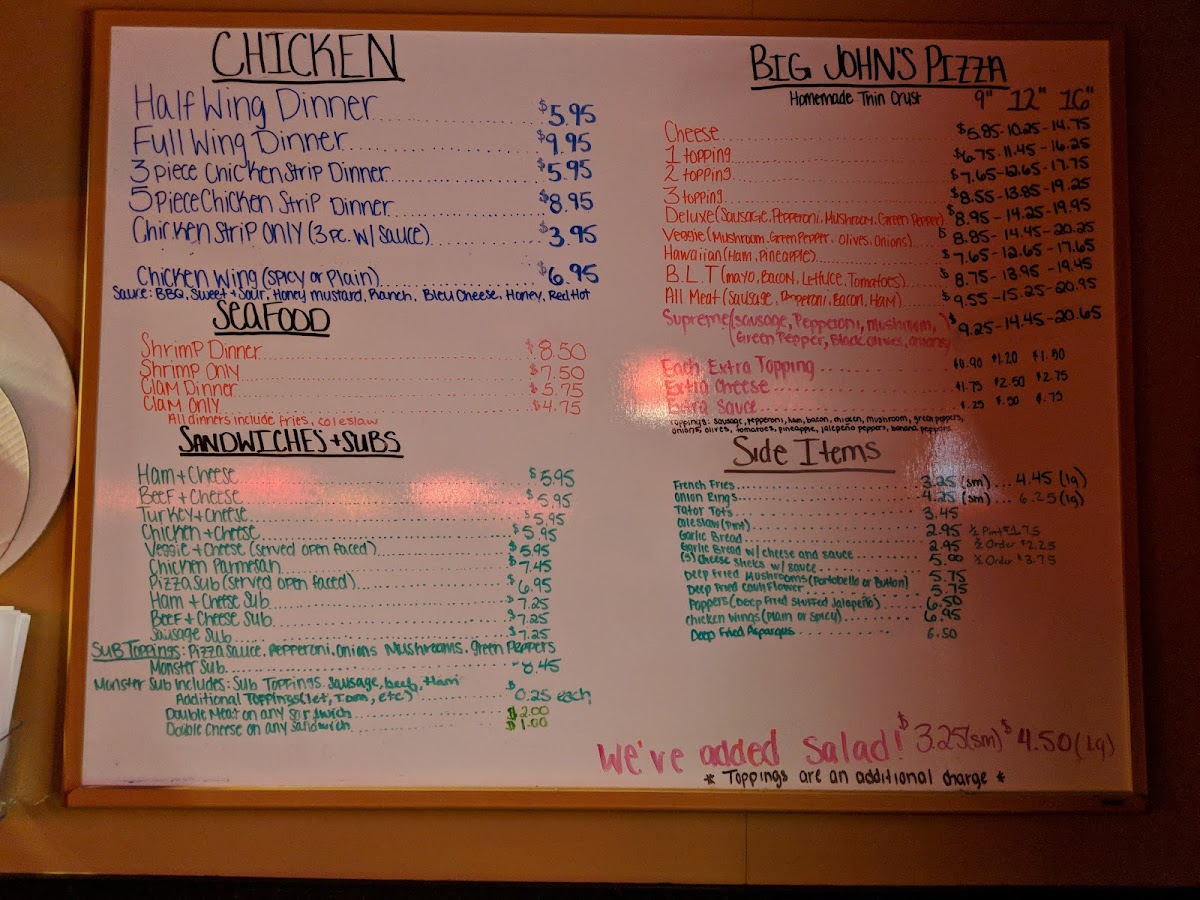 CHICKEN
Half Wing Dinner $5.95
Full Wing Dinner $9.95
3 piece Chicken Strip Dinner $5.95
5 Piece Chicken Strip Dinner $8.95
Chicken Strip Only (3 pc. w/ Sauce) $3.95
Chicken Wing (Spicy or Plain) $6.95
Sauce: BBQ, Sweet + Sour, Honey mustard, Ranch, Bleu Cheese, Honey, Red Hot
SeaFOOD
Shrimp Dinner $8.50
Shrimp Only $7.50
Clam Dinner $5.75
Clam Only $4.75
All dinners include fries, coleslaw
SANDWICHES + SUBS
Ham + Cheese $5.95
Beef + Cheese $5.95
Turkey + Cheese $5.95
Chicken + Cheese $5.95
Veggie + Cheese (served open faced) $5.95
Chicken Parmesan $7.45
Pizza Sub (served open faced) $6.95
Ham + Cheese Sub $7.25
Beef + Cheese Sub $7.25
Sausage Sub $7.25
Sub Toppings: Pizza Sauce, Pepperoni, Onions Mushrooms, Green Peppers
Monster Sub 8.45
Monster Sub includes: Sub Toppings, Sausage, beef, Ham
Additional Toppings (let, Tom, etc) $0.25 each
Double Meat on any sandwich $2.00
Double Cheese on any sandwich $1.00
BIG JOHN'S PIZZA
Homemade Thin Crust 9" 12" 16"
Cheese $5.85-10.25-14.75
1 topping $6.75-11.45-16.25
2 topping $7.65-12.65-17.75
3 topping $8.55-13.85-19.25
Deluxe (Sausage, Pepperoni, Mushroom, Green Pepper) $8.95-14.25-19.95
Veggie (Mushroom, Green Pepper, Olives, Onions) $8.85-14.45-20.25
Hawaiian (Ham, Pineapple) $7.65-12.65-17.65
B.L.T (mayo, Bacon, Lettuce, Tomatoes) $8.75-13.95-19.45
All Meat (Sausage, Pepperoni, Bacon, Ham) $9.55-15.25-20.95
Supreme (Sausage, Pepperoni, mushroom, $9.25-14.45-20.65
Green Pepper, Black olives, onions)
Each Extra Topping $0.90 $1.20 $1.50
Extra Cheese $1.75 $2.50 $2.75
Extra Sauce $.25 $.50 $.75
Toppings: Sausage, pepperoni, ham, bacon, chicken, mushroom, green peppers,
onions, olives, tomatoes, pineapple, jalepeño peppers, banana peppers
Side Items
French Fries 3.25 (sm) 4.45 (lg)
Onion Rings 4.25 (sm) 6.25 (lg)
Tator Tots 3.45
Coleslaw (Pint) 2.95 ½ Pint $1.75
Garlic Bread 2.95 ½ Order $2.25
Garlic Bread w/ cheese and sauce 5.00 ½ Order $3.75
(5) Cheese Sticks w/ Sauce
Deep Fried Mushrooms (Portobello or Button) 5.75
Deep Fried Cauliflower 5.75
Poppers (Deep Fried Stuffed Jalapeño) 6.50
Chicken Wings (Plain or Spicy) 6.95
Deep Fried Asparagus 6.50
We've added Salad! $3.25(sm) $4.50(lg)
* Toppings are an additional charge *